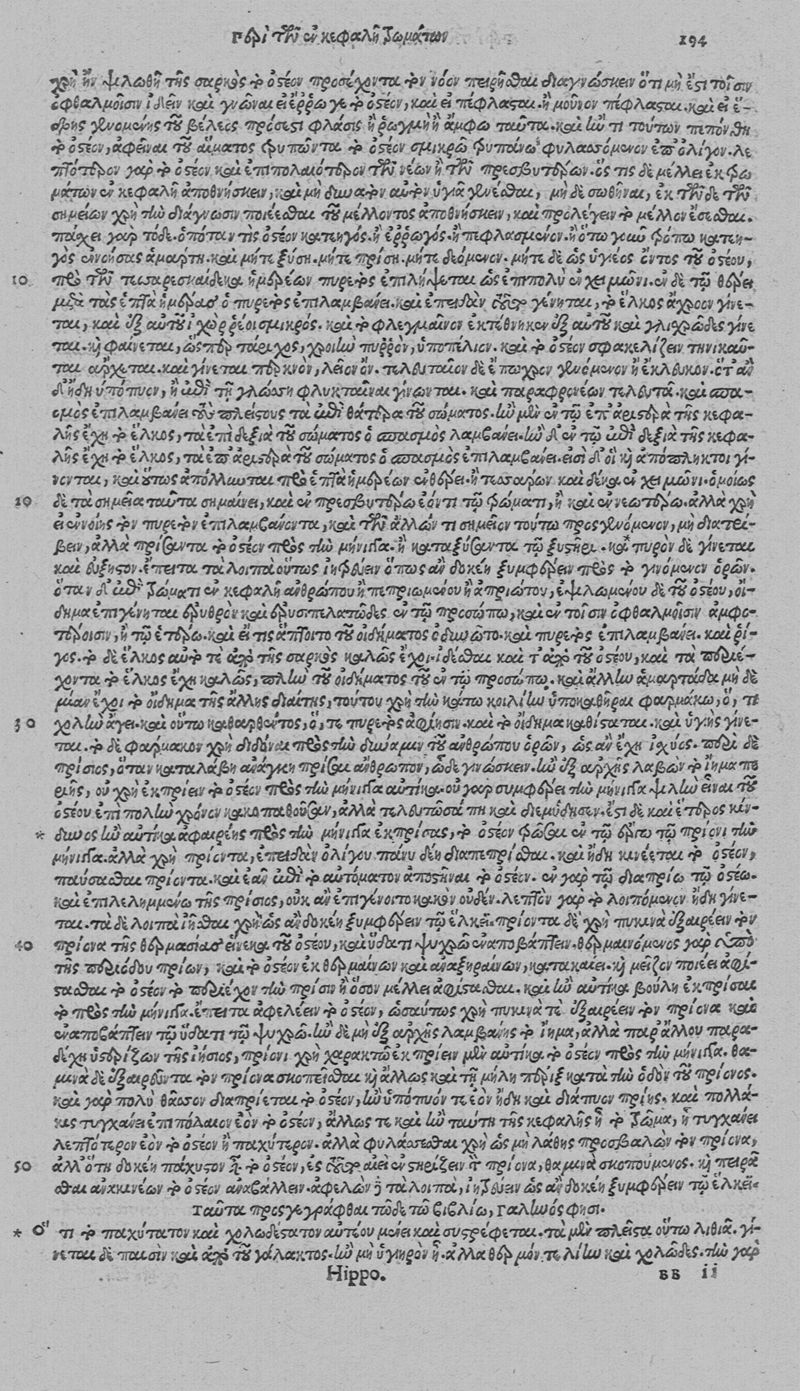 Περὶ τῶν ἐν κεφαλῇ τρωμάτων 194
χρὴ ἢν ψιλωθῇ τῆς σαρκὸς τὸ ὀστέον προσέχοντα τὸν νόον πειρῆσθαι διαγνώσκειν ὅτι μή ἐστι τοῖσιν
ὀφθαλμοῖσιν ἰδεῖν καὶ γνῶναι εἰ ἔρρωγε τὸ ὀστέον, καὶ εἰ πέφλασται. ἢ μοῦνον πέφλασται. καὶ εἰ ἕ-
δρης γενομένης τοῦ βέλεος πρόσεστι φλάσις ἢ ῥωγμὴ ἢ ἄμφω ταῦτα. καὶ ἤν τι τούτων πεπόνθῃ
τὸ ὀστέον, ἀφεῖναι τοῦ αἵματος τρυπῶντα τὸ ὀστέον σμικρῷ τρυπάνῳ φυλασσόμενον ἐπ' ὀλίγον. λε
πτότερον γὰρ τὸ ὀστέον καὶ ἐπιπολαιότερον τῶν νέων ἢ τῶν πρεσβυτέρων. ὅς τις δὲ μέλλει ἐκ τρω
μάτων ἐν κεφαλῇ ἀποθνήσκειν, καὶ μὴ δυνατὸν αὐτὸν ὑγιᾶ γενέσθαι, μὴ δὲ σωθῆναι, ἐκ τῶν δὲ τῶν
σημείων χρὴ τὴν διάγνωσιν ποιέεσθαι τοῦ μέλλοντος ἀποθνήσκειν, καὶ προλέγειν τὸ μέλλον ἔσεσθαι.
πάσχει γὰρ τόδε. ὁπόταν τὶς ὀστέον κατεηγὸς. ἢ ἐρρωγὸς. ἢ πεφλασμένον. ἢ ὅτῳ γοῦν τρόπῳ κατεη-
γὸς ἐννοήσας ἁμάρτῃ. καὶ μήτε ξύσῃ. μήτε πρίσῃ. μήτε δεόμενον. μήτε δὲ ὡς ὑγιέος ὄντος τοῦ ὀστέου,
10 πρὸ τῶν τεσσαρεσκαίδεκα ἡμερέων πυρετὸς ἐπιλήψεται ὡς ἐπιπολὺ ἐν χειμῶνι. ἐν δὲ τῷ θέρει
μετὰ τὰς ἑπτὰ ἡμέρας ὁ πυρετὸς ἐπιλαμβάνει. καὶ ἐπειδὰν τοῦτο γένηται, τὸ ἕλκος ἄχροον γίνε-
ται, καὶ ἐξ αὐτοῦ ἰχὼρ ῥέει σμικρός. καὶ τὸ φλεγμαῖνον ἐκτέθνηκεν ἐξ αὐτοῦ καὶ γλισχρῶδες γίνε
ται. καὶ φαίνεται, ὥσπερ τάριχος, χροιὴν πυρρὸν, ὑποπέλιον. καὶ τὸ ὀστέον σφακελίζειν τηνικαῦ-
ται ἄρχεται. καὶ γίνεται πέρκνον, λεῖον ὄν. τελευταῖον δὲ ἔπωχρον γενόμενον ἢ ἔκλευκον. ὅτ' ἂν
δ' ἤδη ὑπόπυον, ἢ ἐπὶ τῇ γλώσσῃ φλυκταῖναι γίνονται. καὶ παραφρονέων τελευτᾷ. καὶ σπα-
σμὸς ἐπιλαμβάνει τοὺς πλείστους τὰ ἐπὶ θάτερα τοῦ σώματος. ἢν μὲν ἐν τῷ ἐπ' ἀριστερὰ τῆς κεφα-
λῆς ἔχῃ τὸ ἕλκος, τὰ ἐπὶ δεξιὰ τοῦ σώματος ὁ σπασμὸς λαμβάνει. ἢν δ' ἐν τῷ ἐπὶ δεξιὰ τῆς κεφα-
λῆς ἔχῃ τὸ ἕλκος, τὰ ἐπ' ἀριστερὰ τοῦ σώματος ὁ σπασμὸς ἐπιλαμβάνει. εἰσὶ δ' οἳ καὶ ἀπόπληκτοι γί-
νονται, καὶ οὕτως ἀπόλλυται πρὸ ἑπτὰ ἡμερέων ἐν θέρει. ἢ τεσσάρων καὶ δέκα ἐν χειμῶνι. ὁμοίως
20 δὲ τὰ σημεῖα ταῦτα σημαίνει, καὶ ἐν πρεσβυτέρῳ ἐόντι τῷ τρώματι, ἢ καὶ ἐν νεωτέρῳ. ἀλλὰ χρὴ
εἰ ἐννοίης τὸν πυρετὸν ἐπιλαμβάνοντα, καὶ τῶν ἄλλων τι σημεῖον τούτῳ προσγενόμενον, μὴ διατρί-
βειν, ἀλλὰ πρίσαντα τὸ ὀστέον πρὸς τὴν μήνιγγα. ἢ καταξύσαντα τῷ ξυστῆρι. καὶ πυρὸν δὲ γίνεται
καὶ εὔξυστον. ἔπειτα τὰ λοιπὰ οὕτως ἰητρεύειν ὅπως ἂν δοκέῃ ξυμφέρειν πρὸς τὸ γινόμενον ὁρῶν.
ὅταν δ' ἐπὶ τρώματι ἐν κεφαλῇ ἀνθρώπου ἢ πεπριωμένου ἢ ἀπριώτου, ἐψιλωμένου δὲ τοῦ ὀστέου, οἴ-
δημα ἐπιγένηται ἐρυθρὸν καὶ ἐρυσιπελατῶδες ἐν τῷ προσώπῳ, καὶ ἐν τοῖσιν ὀφθαλμοῖσιν ἀμφο-
τέροισιν, ἢ τῷ ἑτέρῳ. καὶ εἴ τις ἅπτοιτο τοῦ οἰδήματος ὀδυνῷτο. καὶ πυρετὸς ἐπιλαμβάνει. καὶ ῥῖ-
γος. τὸ δὲ ἕλκος αὐτό τε ἀπὸ τῆς σαρκὸς καλῶς ἔχοι ἰδέσθαι καὶ τ' ἀπὸ τοῦ ὀστέου, καὶ τὰ περιέ-
χοντα τὸ ἕλκος ἔχῃ καλῶς, πλὴν τοῦ οἰδήματος τοῦ ἐν τῷ προσώπῳ. καὶ ἄλλην ἁμαρτάδα μὴ δε
μίαν ἔχοι τὸ οἴδημα τῆς ἄλλης διαίτης, τούτου χρὴ τὴν κάτω κοιλίην ὑποκαθῆραι φαρμάκῳ, ὅ, τι
30 χολὴν ἄγει. καὶ οὕτω καθαρθέντος, ὅ, τε πυρετὸς ἀφίησιν. καὶ τὸ οἴδημα καθίσταται. καὶ ὑγιὴς γίνε-
ται. τὸ δὲ φάρμακον χρὴ διδόναι πρὸς τὴν δύναμιν τοῦ ἀνθρώπου ὁρῶν, ὡς ἂν ἔχῃ ἰσχύος. περὶ δὲ
πρίσιος, ὅταν καταλάβῃ ἀνάγκη πρίσαι ἄνθρωπον, ὧδε γινώσκειν. ἢν ἐξ ἀρχῆς λαβὼν τὸ ἴημα πο
ιέῃς, οὐ χρὴ ἐκπρίειν τὸ ὀστέον πρὸς τὴν μήνιγγα αὐτίκα. οὐ γὰρ συμφέρει τὴν μήνιγγα ψιλὴν εἶναι τοῦ
ὀστέου ἐπὶ πολὺν χρόνον κακοπαθοῦσαν, ἀλλὰ τελευτῶσά πη καὶ διεμύδησεν. ἔστι δὲ καὶ ἕτερος κίν-
* δυνος ἢν αὐτίκα ἀφαιρέῃς πρὸς τὴν μήνιγγα ἐκπρίσας, τὸ ὀστέον τρῶσαι ἐν τῷ ἔργῳ τῷ πρίονι τὴν
μήνιγγα. ἀλλὰ χρὴ πρίοντα, ἐπειδὰν ὀλίγου πάνυ δέῃ διαπεπρῖσθαι. καὶ ἤδη κινέεται τὸ ὀστέον,
παύσασθαι πρίοντα. καὶ ἐᾶν ἐπὶ τὸ αὐτόματον ἀποστῆναι τὸ ὀστέον. ἐν γὰρ τῷ διαπρίῳ τῷ ὀστέῳ.
καὶ ἐπιλελημμένῳ τῆς πρίσιος, οὐκ ἂν ἐπιγένοιτο κακὸν οὐδέν. λεπτὸν γὰρ τὸ λειπόμενον ἤδη γίνε-
ται. τὰ δὲ λοιπὰ ἰῆσθαι χρὴ ὡς ἂν δοκέῃ ξυμφέρειν τῷ ἕλκεϊ. πρίοντα δὲ χρὴ πυκινὰ ἐξαιρέειν τὸν
40 πρίονα τῆς θερμασίας εἵνεκα τοῦ ὀστέου, καὶ ὕδατι ψυχρῷ ἐναποβάπτειν. θερμαινόμενος γὰρ ὑπὸ
τῆς περιόδου πρίων, καὶ τὸ ὀστέον ἐκθερμαίνων καὶ ἀναξηραίνων, κατακαίει. καὶ μεῖζον ποιέει ἀφί-
στασθαι τὸ ὀστέον τὸ περιέχον τὴν πρίσιν ἢ ὅσον μέλλει ἀφίστασθαι. καὶ ἢν αὐτίκα βούλῃ ἐκπρίσαι
τὸ πρὸς τὴν μήνιγγα. ἔπειτα ἀφελέειν τὸ ὀστέον, ὡσαύτως χρὴ πυκινά τε ἐξαιρέειν τὸν πρίονα καὶ
ἐναποβάπτειν τῷ ὕδατι τῷ ψυχρῷ. ἢν δὲ μὴ ἐξ ἀρχῆς λαμβάνῃς τὸ ἴημα, ἀλλὰ παρ' ἄλλου παρα-
δέχῃ ὑστερίζων τῆς ἰήσιος, πρίονι χρὴ χαρακτῷ ἐκπρίειν μὲν αὐτίκα τὸ ὀστέον πρὸς τὴν μήνιγγα. θα-
μινὰ δὲ ἐξαιρεῦντα τὸν πρίονα σκοπεῖσθαι καὶ ἄλλως καὶ τῇ μήλῃ πέριξ κατὰ τὴν ὁδὸν τοῦ πρίονος.
καὶ γὰρ πολὺ θᾶσσον διαπρίεται τὸ ὀστέον, ἢν ὑπόπυόν τε ἐὸν ἤδη καὶ διάπυον πρίῃς. καὶ πολλά-
κις τυγχάνει ἐπιπόλαιον ἐὸν τὸ ὀστέον, ἄλλως τε καὶ ἢν ταύτῃ τῆς κεφαλῆς ᾖ τὸ τρῶμα, ᾗ τυγχάνει
λεπτότερον ἐὸν τὸ ὀστέον ἢ παχύτερον. ἀλλὰ φυλάσσεσθαι χρὴ ὡς μὴ λάθῃς προσβαλὼν τὸν πρίονα,
50 ἀλλ' ὅτῃ δοκέῃ πάχυστον εἶναι τὸ ὀστέον, ἐς τοῦτο αἰεὶ ἐνστηρίζειν τὸν πρίονα, θαμινὰ σκοπούμενος. καὶ πειρᾶ
σθαι ἀνακινέων τὸ ὀστέον ἀναβάλλειν. ἀφελὼν δὲ τὰ λοιπὰ, ἰητρεύειν ὡς ἂν δοκέῃ ξυμφέρειν τῷ ἕλκεϊ.
Ταῦτα προσγεγράφθαι τῷδε τῷ βιβλίῳ, Γαληνὸς φησι.
* Ὅ τι τὸ παχύτατον καὶ χολωδέστατον αὐτέου μένει καὶ συστρέφεται. τὰ μὲν πλεῖστα οὕτω λιθιᾷ. γί-
νεται δὲ παισὶν καὶ ἀπὸ τοῦ γάλακτος. ἢν μὴ ὑγιηρὸν ᾖ. ἀλλὰ θερμόν τε λίην καὶ χολῶδες. τὴν γὰρ
Hippo. BB ii